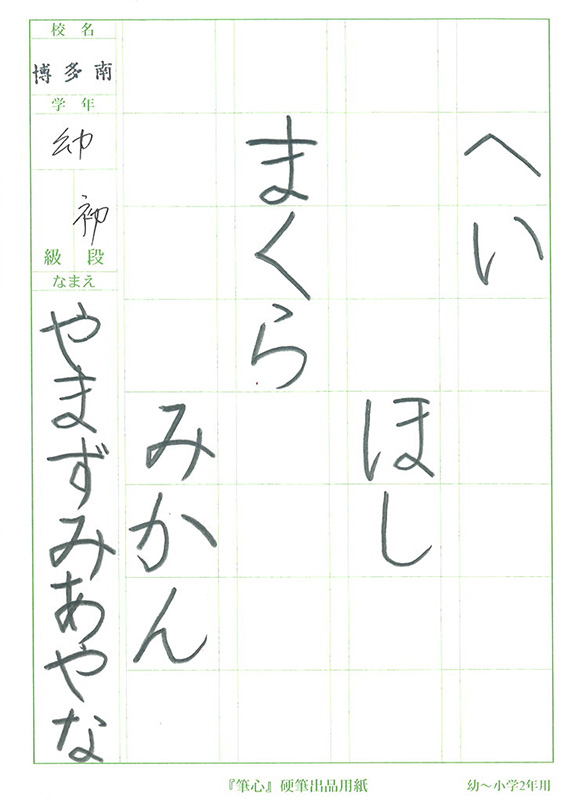 へい
ほし
まくら
みかん
校名
博多南
学年
幼
初
級段
なまえ
やまずみあやな
『筆心』硬筆出品用紙
幼〜小学2年用